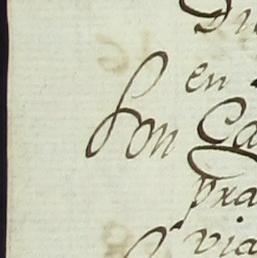 en
Son Ca
pra
via